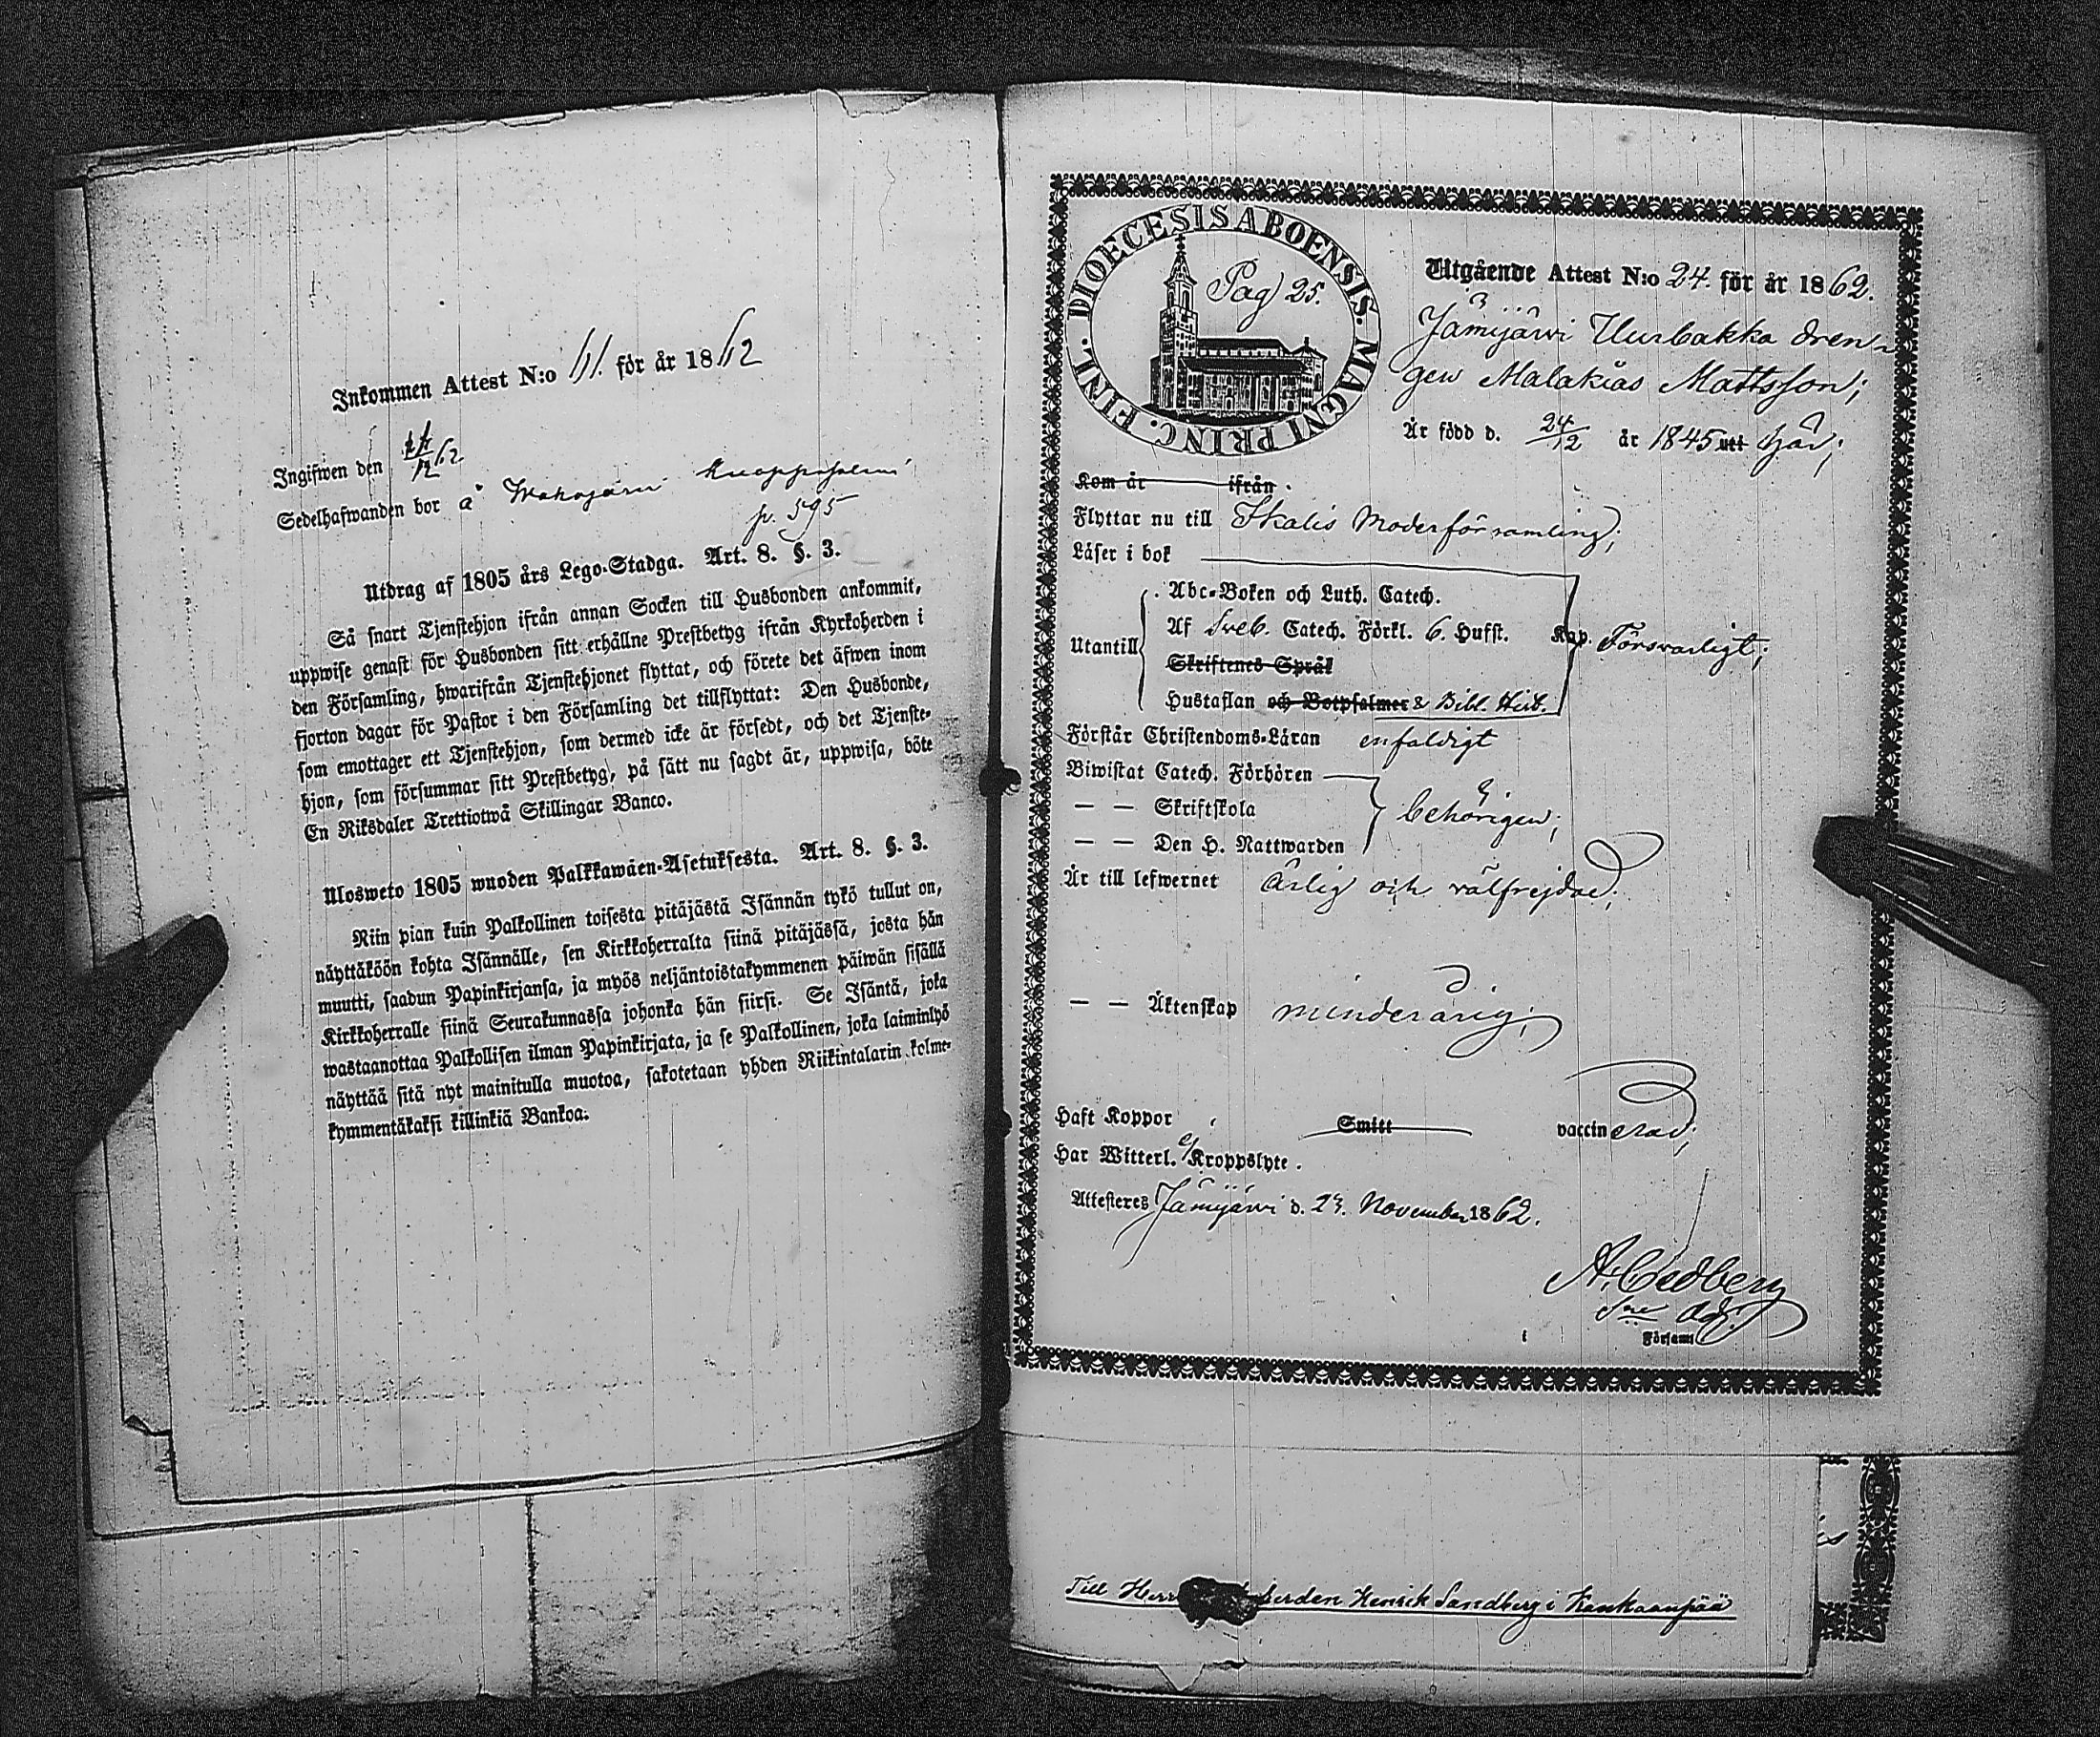 Inkommen Attest N:o 61. för år 1862
Ingifwen den 12 62
Sedelhafwanden bor å
p. 595
Utdrag af 1805 års Lego-Stadga. Art. 8. §. 3.
Så snart Tjenstehjon ifrån annan Socken till Husbonden ankommit,
uppwise genast för Husbonden sitt erhållne Prestbetyg ifrån Kyrkoherden i
den Församling, hwarifrån Tjenstehjonet flyttat, och förete det äfwen inom
fjorton dagar för Pastor i den Församling det tillflyttat: Den Husbonde,
som emottager ett Tjenstehjon, som dermed icke är försedt, och det Tjenste-
hjon, som försummar sitt Prestbetyg, på sätt nu sagdt är, uppwisa, böte
En Riksdaler Trettiotwå Skillingar Banco.
Ulosweto 1805 wuoden Palkkawäen-Asetuksesta. Art. 8. §. 3.
Niin pian kuin Palkollinen toisesta pitäjästä Isännän tykö tullut on,
näyttäköön kohta Isännälle, sen Kirkkoherralta siinä pitäjässä, josta hän
muutti, saadun Papinkirjansa, ja myös neljäntoistakymmenen päiwän sisällä
Kirkkoherralle siinä Seurakunnassa johonka hän siirsi. Se Isäntä, joka
wastaanottaa Palkollisen ilman Papinkirjata, ja se Palkollinen, joka laiminlyö
näyttää sitä nyt mainitulla muotoa, sakotetaan yhden Riikintalarin kolme-
kymmentäkaksi killinkiä Bankoa.
DIOECESIS ABOENSIS. MAGNI PRINC. FINL.
Pag 25.
Utgående Attest N:o 24. för år 1862.
Jämijärvi Uurbakka dren-
gen Malakias Mattsson;
Är född d. 24/12 år 1845 uti här;
Kom år ifrån.
Flyttar nu till Ikalis Moderförsamling;
Läser i bok
Abc-Boken och Luth. Catech.
Utantill Af Sveb. Catech. Förkl. 6. Hufst. Kap. Försvarligt;
Skriftenes Språk
Hustaflan och Botpsalmer & Bibl. Hist.
Förstår Christendoms-Läran enfaldigt
Biwistat Catech. Förhören
— — Skriftskola behörigen;
— — Den H. Nattwarden
Är till lefwernet ärlig och välfrejdad;
— — Äktenskap minderårig;
Haft Koppor Smitt vaccinerad;
Har Witterl. ej Kroppslyte.
Attesteres Jämijärvi d. 23. November 1862.
A. Cedberg
Sne Adj.
i Församl
Till Herr herden Henrik Sandberg i Kankaanpää